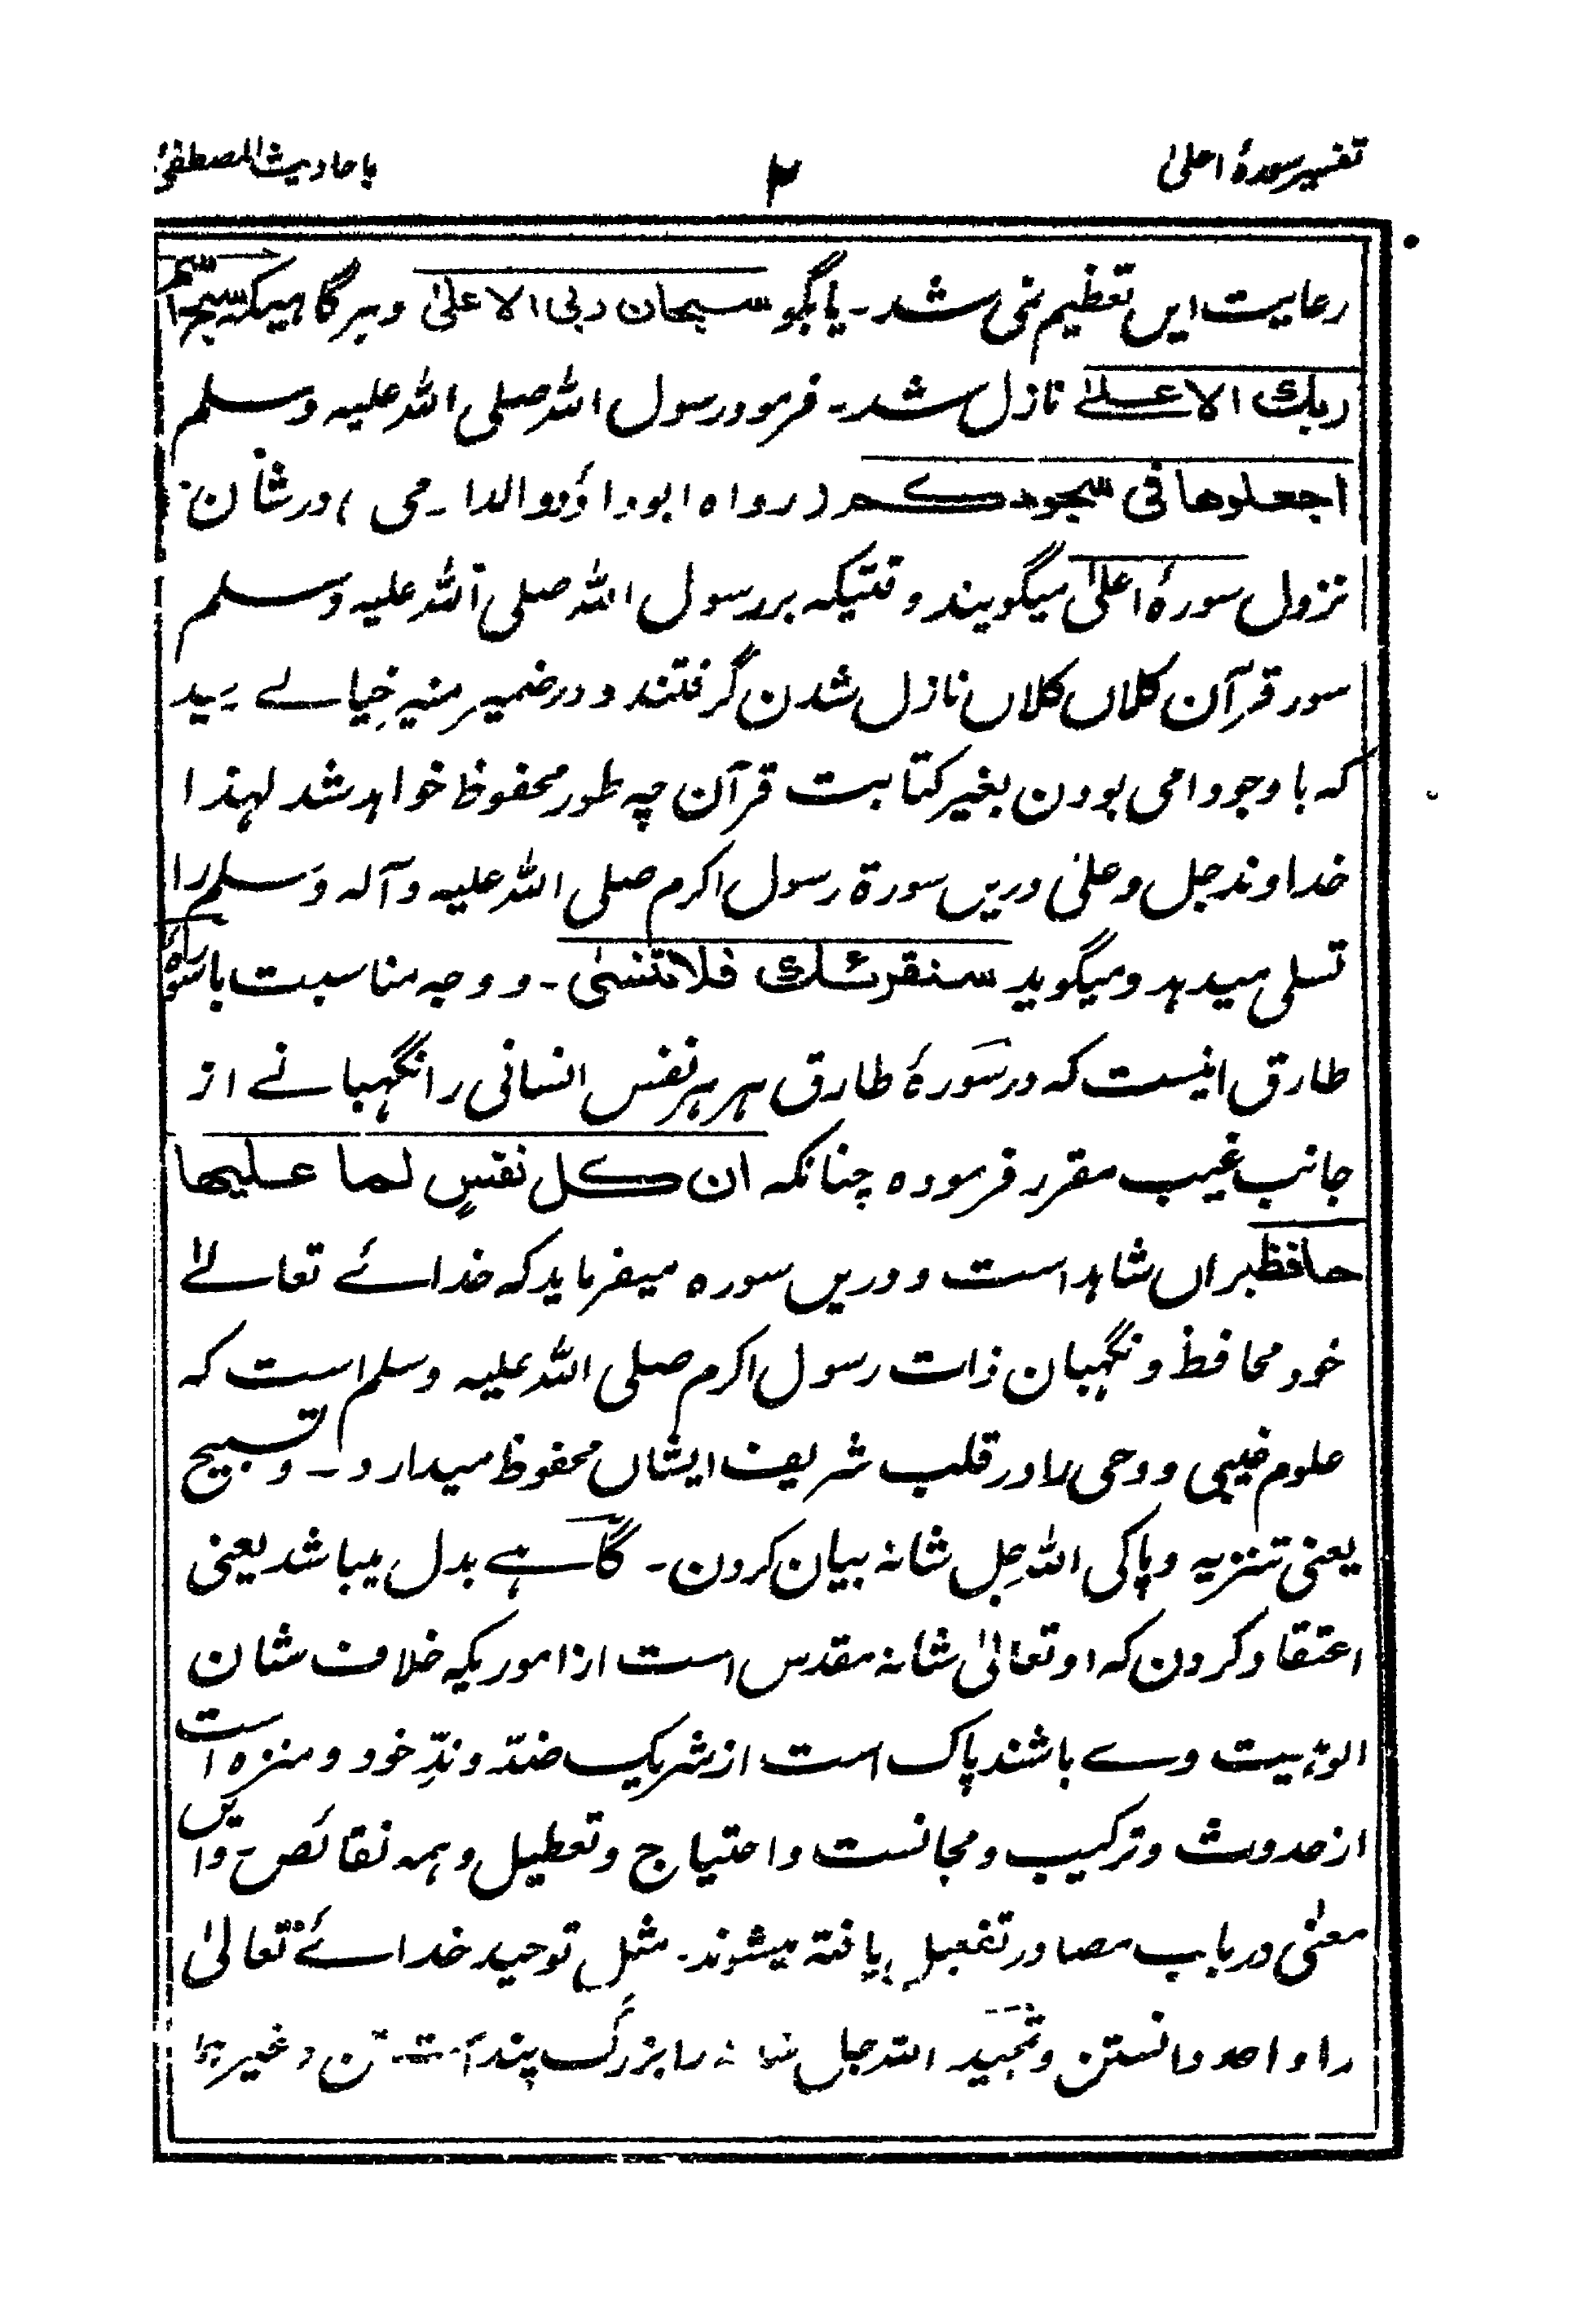 تفسیر سورۂ اعلیٰ ۴ باحادیث المصطفیٰ
رعایت ایں تعظیم نمی شد۔ یا بگو سبحان ربی الاعلیٰ و ہر گاہیکہ سبح اسم
ربك الاعلےٰ نازل شد۔ فرمود رسول اللہ صلی اللہ علیہ وسلم
اجعلوھا فی سجودكم (رواہ ابوداؤد و الدارمی) در شان
نزول سورۂ اعلیٰ میگویند وقتیکہ بر رسول اللہ صلی اللہ علیہ وسلم
سور قرآن کلاں کلاں نازل شدن گرفتند و در ضمیر منیر خیالے رسید
کہ باوجود امی بودن بغیر کتابت قرآن چہ طور محفوظ خواہد شد لہذا
خداوند جل و علیٰ دریں سورۃ رسول اکرم صلی اللہ علیہ وآلہ وسلم را
تسلی میدہد و میگوید سنقرئك فلا تنسیٰ۔ و وجہ مناسبت با سورۂ
طارق اینست کہ در سورۂ طارق ہر ہر نفس انسانی را نگہبانے از
جانب غیب مقرر فرمودہ چنانکہ ان كل نفسٍ لما علیها
حافظ براں شاہد است و دریں سورہ میفرماید کہ خدائے تعالےٰ
خود محافظ و نگہبان ذات رسول اکرم صلی اللہ علیہ وسلم است کہ
علوم غیبی و وحی را در قلب شریف ایشاں محفوظ میدارد۔ و تسبیح
یعنی تنزیہ و پاکی اللہ جل شانہ بیان کردن۔ گاہے بدل میباشد یعنی
اعتقاد کردن کہ او تعالیٰ شانہ مقدس است از اموریکہ خلاف شان
الوہیت وے باشند پاک است از شریک ضد و ندِّ خود و منزہ است
از حدوث و ترکیب و مجانست و احتیاج و تعطیل و ہمہ نقائص۔ و ایں
معنی در باب مصادر تفعیل یافتہ میشوند۔ مثل توحید خدائے تعالیٰ
را واحد دانستن و تمجید اللہ جل شانہ را بزرگ پنداشتن وغیرہا